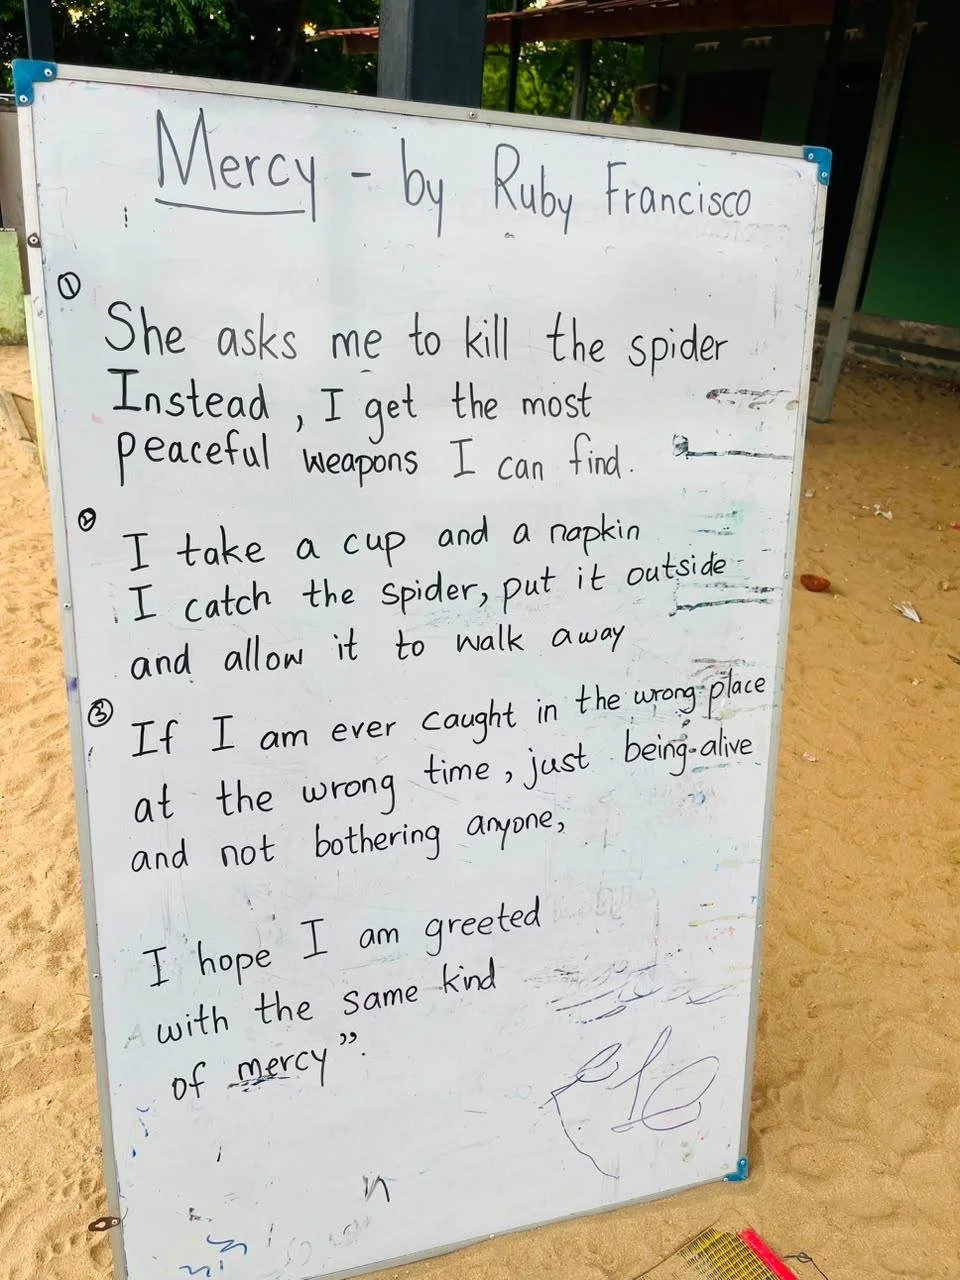 Mercy - by Ruby Francisco
①
She asks me to kill the spider
Instead, I get the most
peaceful weapons I can find.
②
I take a cup and a napkin
I catch the spider, put it outside
and allow it to walk away
③
If I am ever caught in the wrong place
at the wrong time, just being alive
and not bothering anyone,
I hope I am greeted
with the same kind
of mercy”.